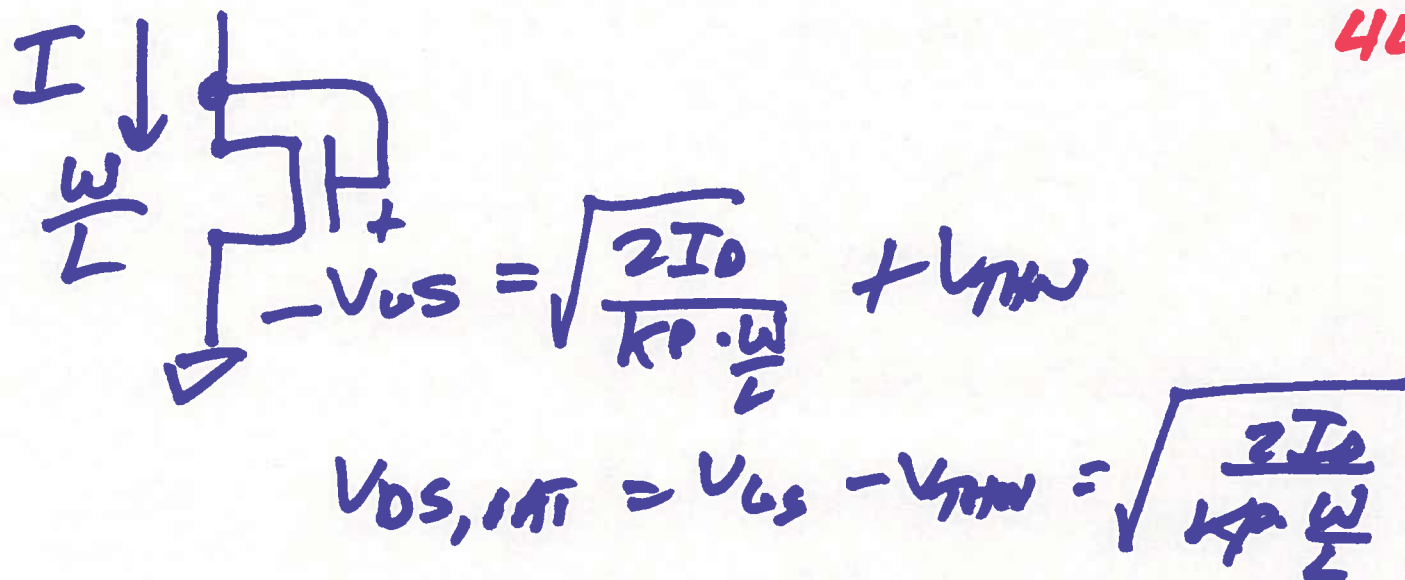 I
W/L
+
-VGS = √(2ID / (KP · W/L)) + VTHN
VDS,SAT = VGS - VTHN = √(2ID / (KP · W/L))